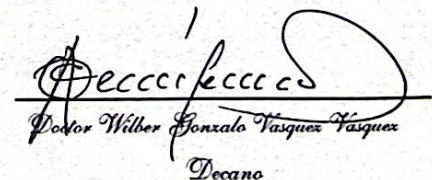 Doctor Wilber Gonzalo Vasquez Vasquez
Decano